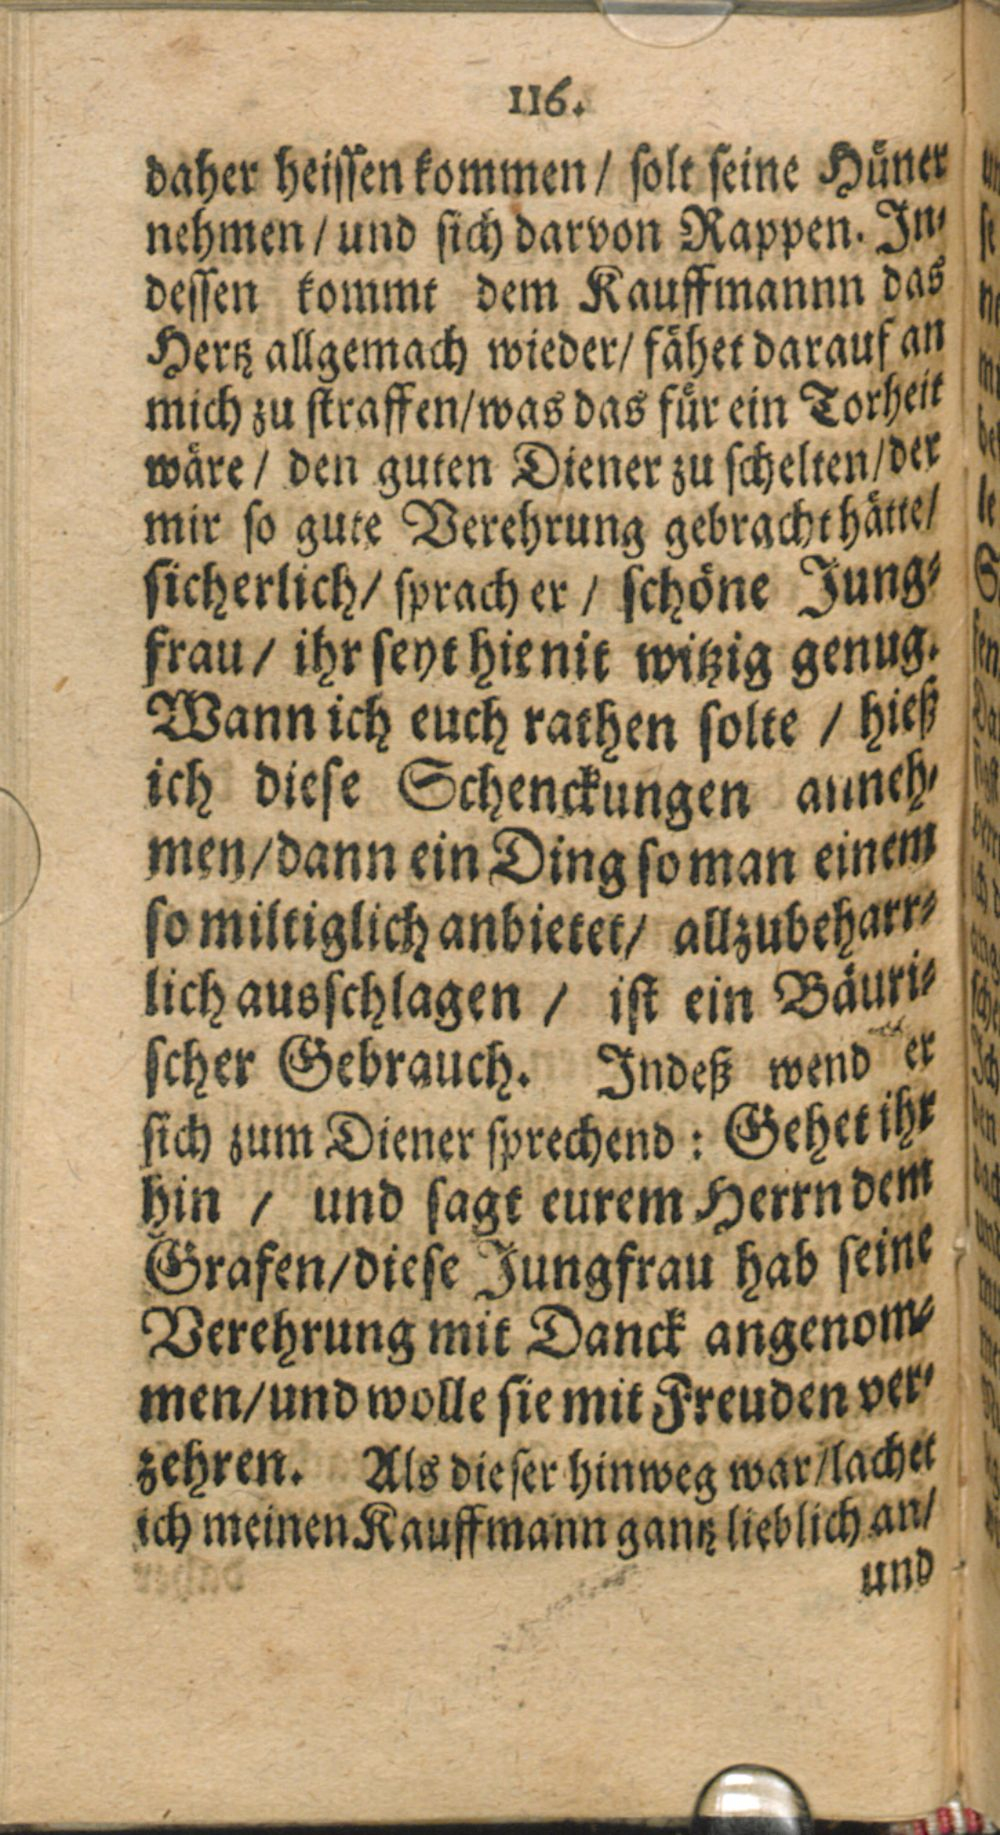 116.
daher heissen kommen / solt seine Hüner
nehmen / und sich darvon Rappen. In-
dessen kommt dem Kauffmannn das
Hertz allgemach wieder / fähet darauf an
mich zu straffen / was das für ein Torheit
wäre / den guten Diener zu schelten / der
mir so gute Verehrung gebracht hätte /
sicherlich / sprach er / schöne Jung-
frau / ihr seyt hienit witzig genug.
Wann ich euch rathen solte / hieß
ich diese Schenckungen anneh-
men / dann ein Ding so man einem
so miltiglich anbietet / allzubeharr-
lich ausschlagen / ist ein Bäuri-
scher Gebrauch. Indeß wend er
sich zum Diener sprechend : Gehet ihr
hin / und sagt eurem Herrn dem
Grafen / diese Jungfrau hab seine
Verehrung mit Danck angenom-
men / und wolle sie mit Freuden ver-
zehren. Als dieser hinweg war / lachet
ich meinen Kauffmann gantz lieblich an /
und